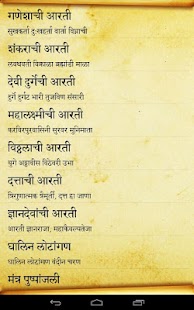 गणेशाची आरती
सुखकर्ता दुःखहर्ता वार्ता विघ्नाची
शंकराची आरती
लवथवती विक्राळा ब्रह्मांडी माळा
देवी दुर्गेची आरती
दुर्गे दुर्घट भारी तुजविण संसारी
महालक्ष्मीची आरती
करविरपुरवासिनी सुरवर मुनिमाता
विठ्ठलाची आरती
युगे अठ्ठावीस विटेवरी उभा
दत्ताची आरती
त्रिगुणात्मक त्रैमूर्ती, दत्त हा जाणा
ज्ञानदेवांची आरती
आरती ज्ञानराजा, महाकैवल्यतेजा
घालिन लोटांगण
घालिन लोटांगण वंदीन चरण
मंत्र पुष्पांजली